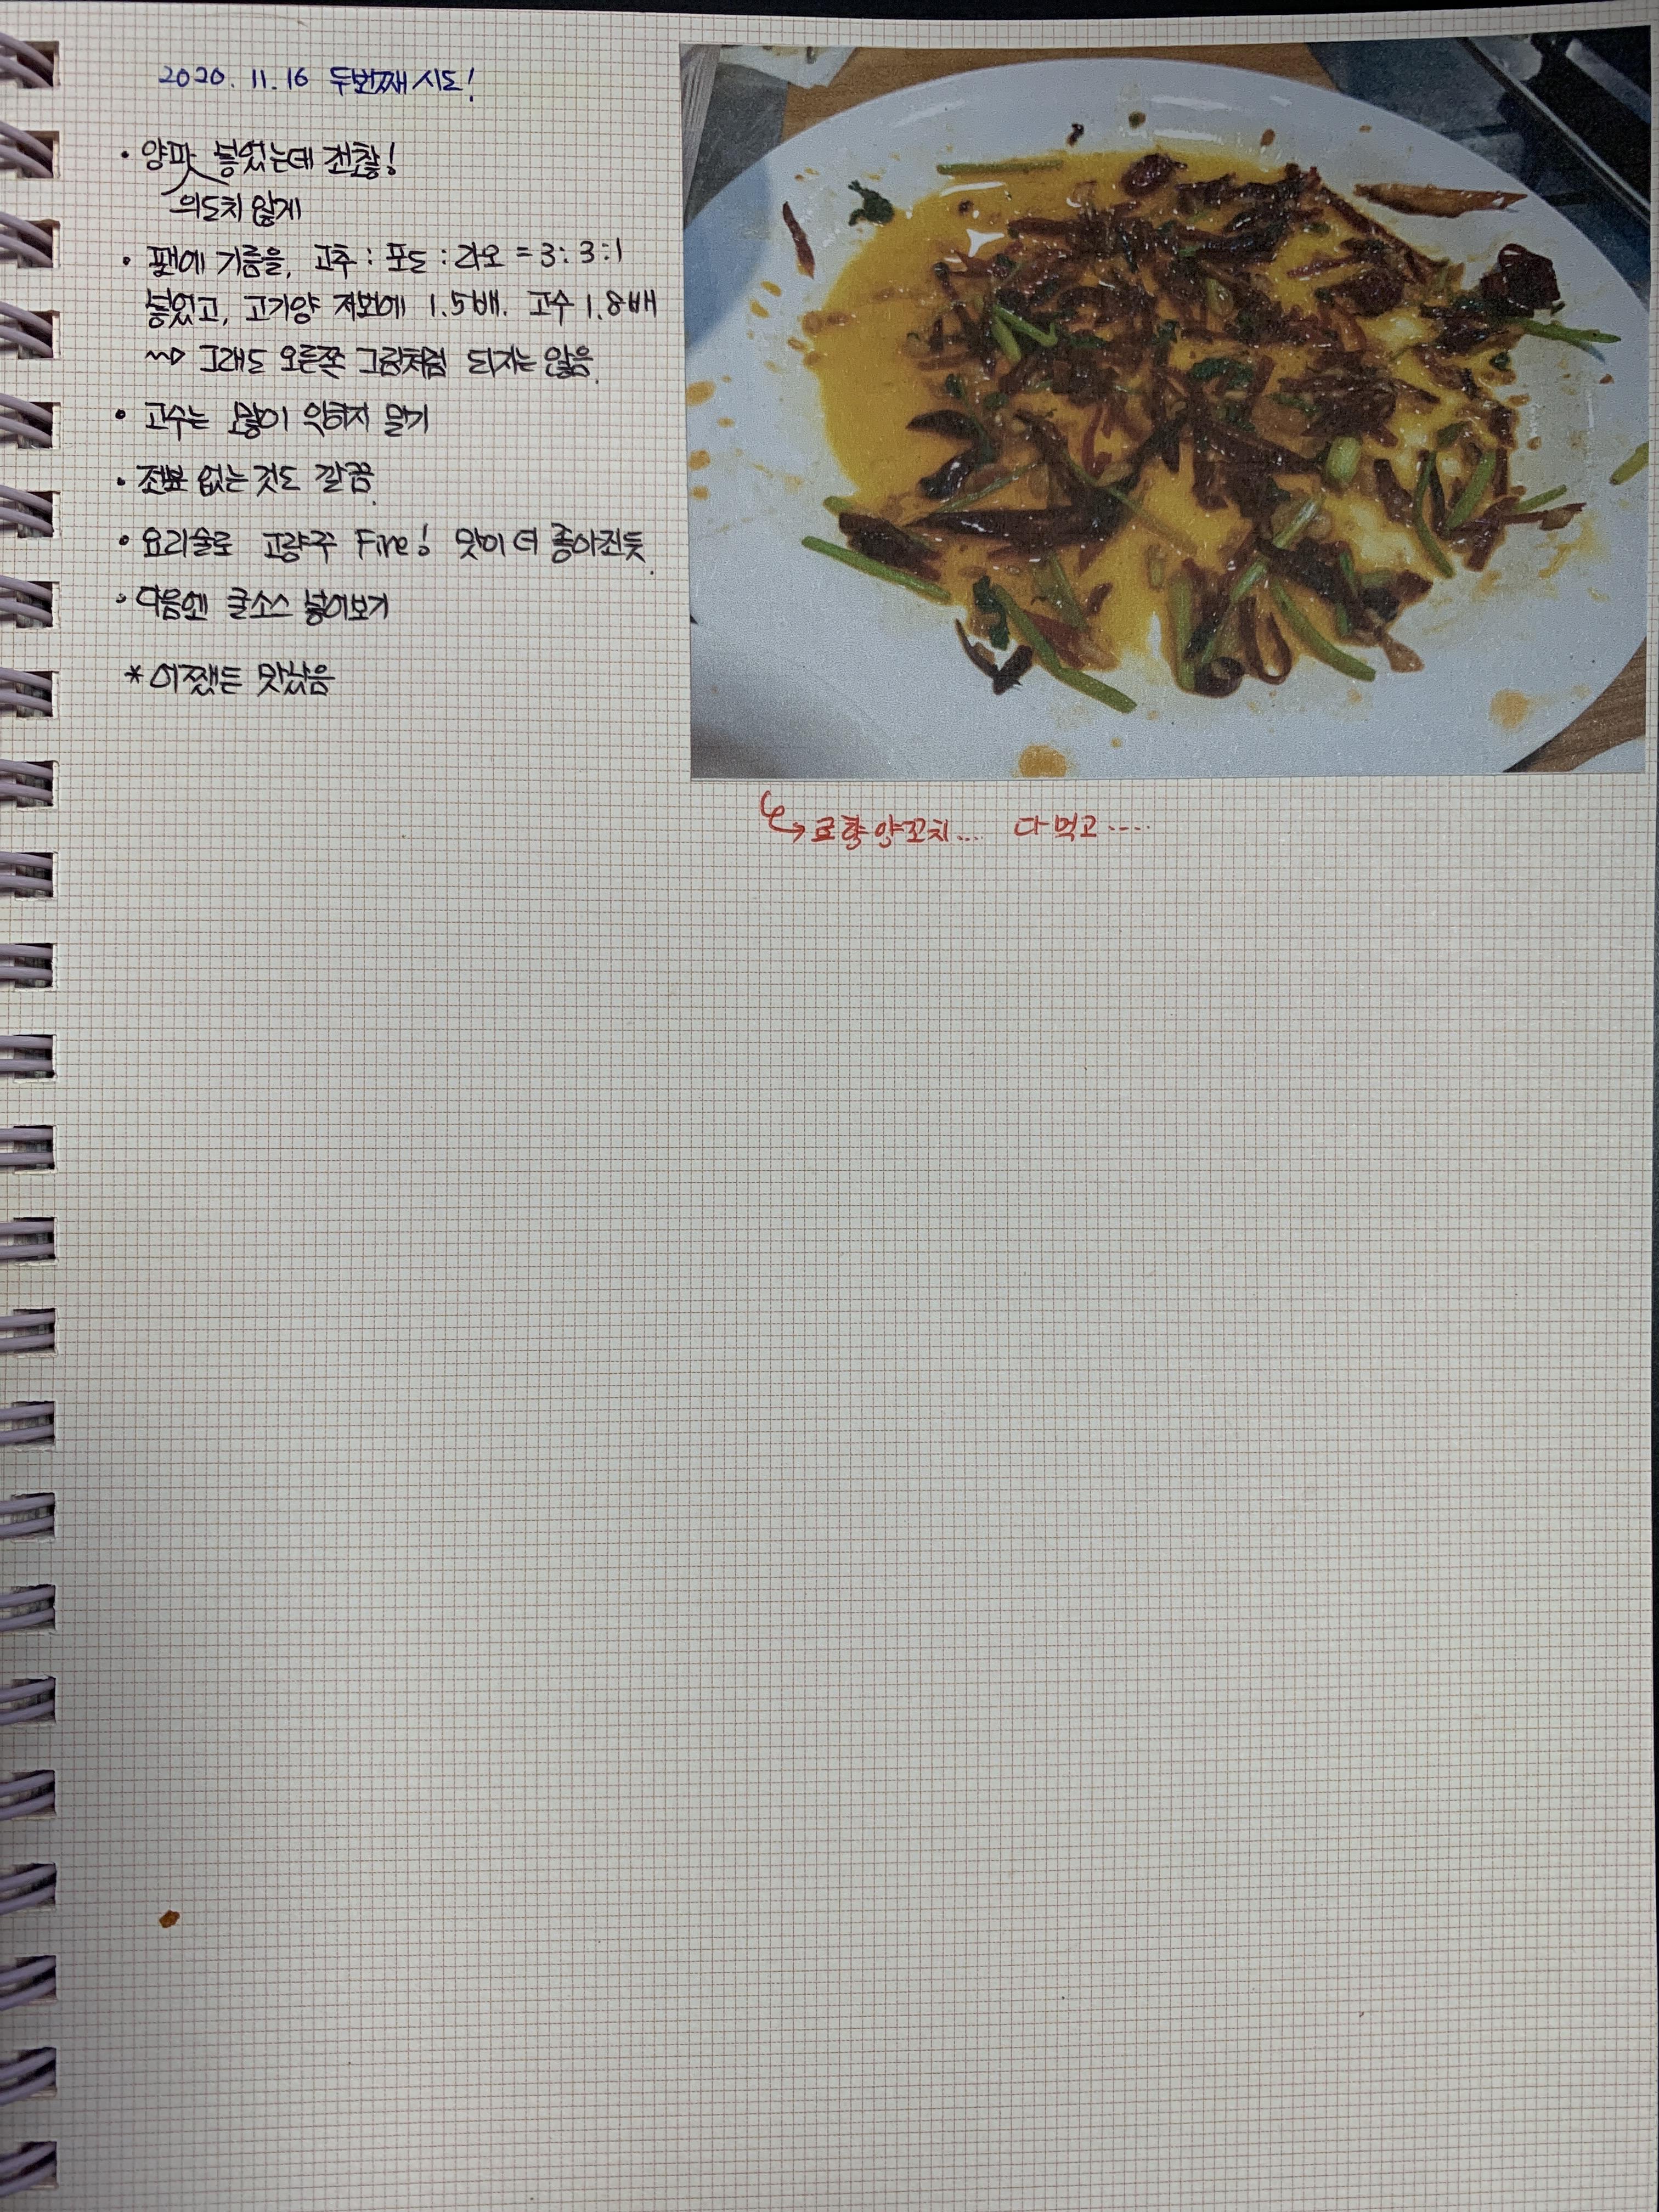 2020. 11. 16 두번째 시도!
• 양파 넣었는데 괜찮!
의도치 않게
• 팬에 기름을, 고추 : 포도 : 라오 = 3 : 3 : 1
넣었고, 고기양 저번에 1.5배. 고수 1.8배
~> 그래도 오른쪽 그림처럼 되지는 않음.
• 고수는 많이 익히지 말기
• 전분 없는 것도 깔끔.
• 요리술로 고량주 Fine! 맛이 더 좋아진듯.
• 다음엔 굴소스 넣어보기
* 어쨌든 맛났음
↳ 료향양꼬치... 다 먹고....